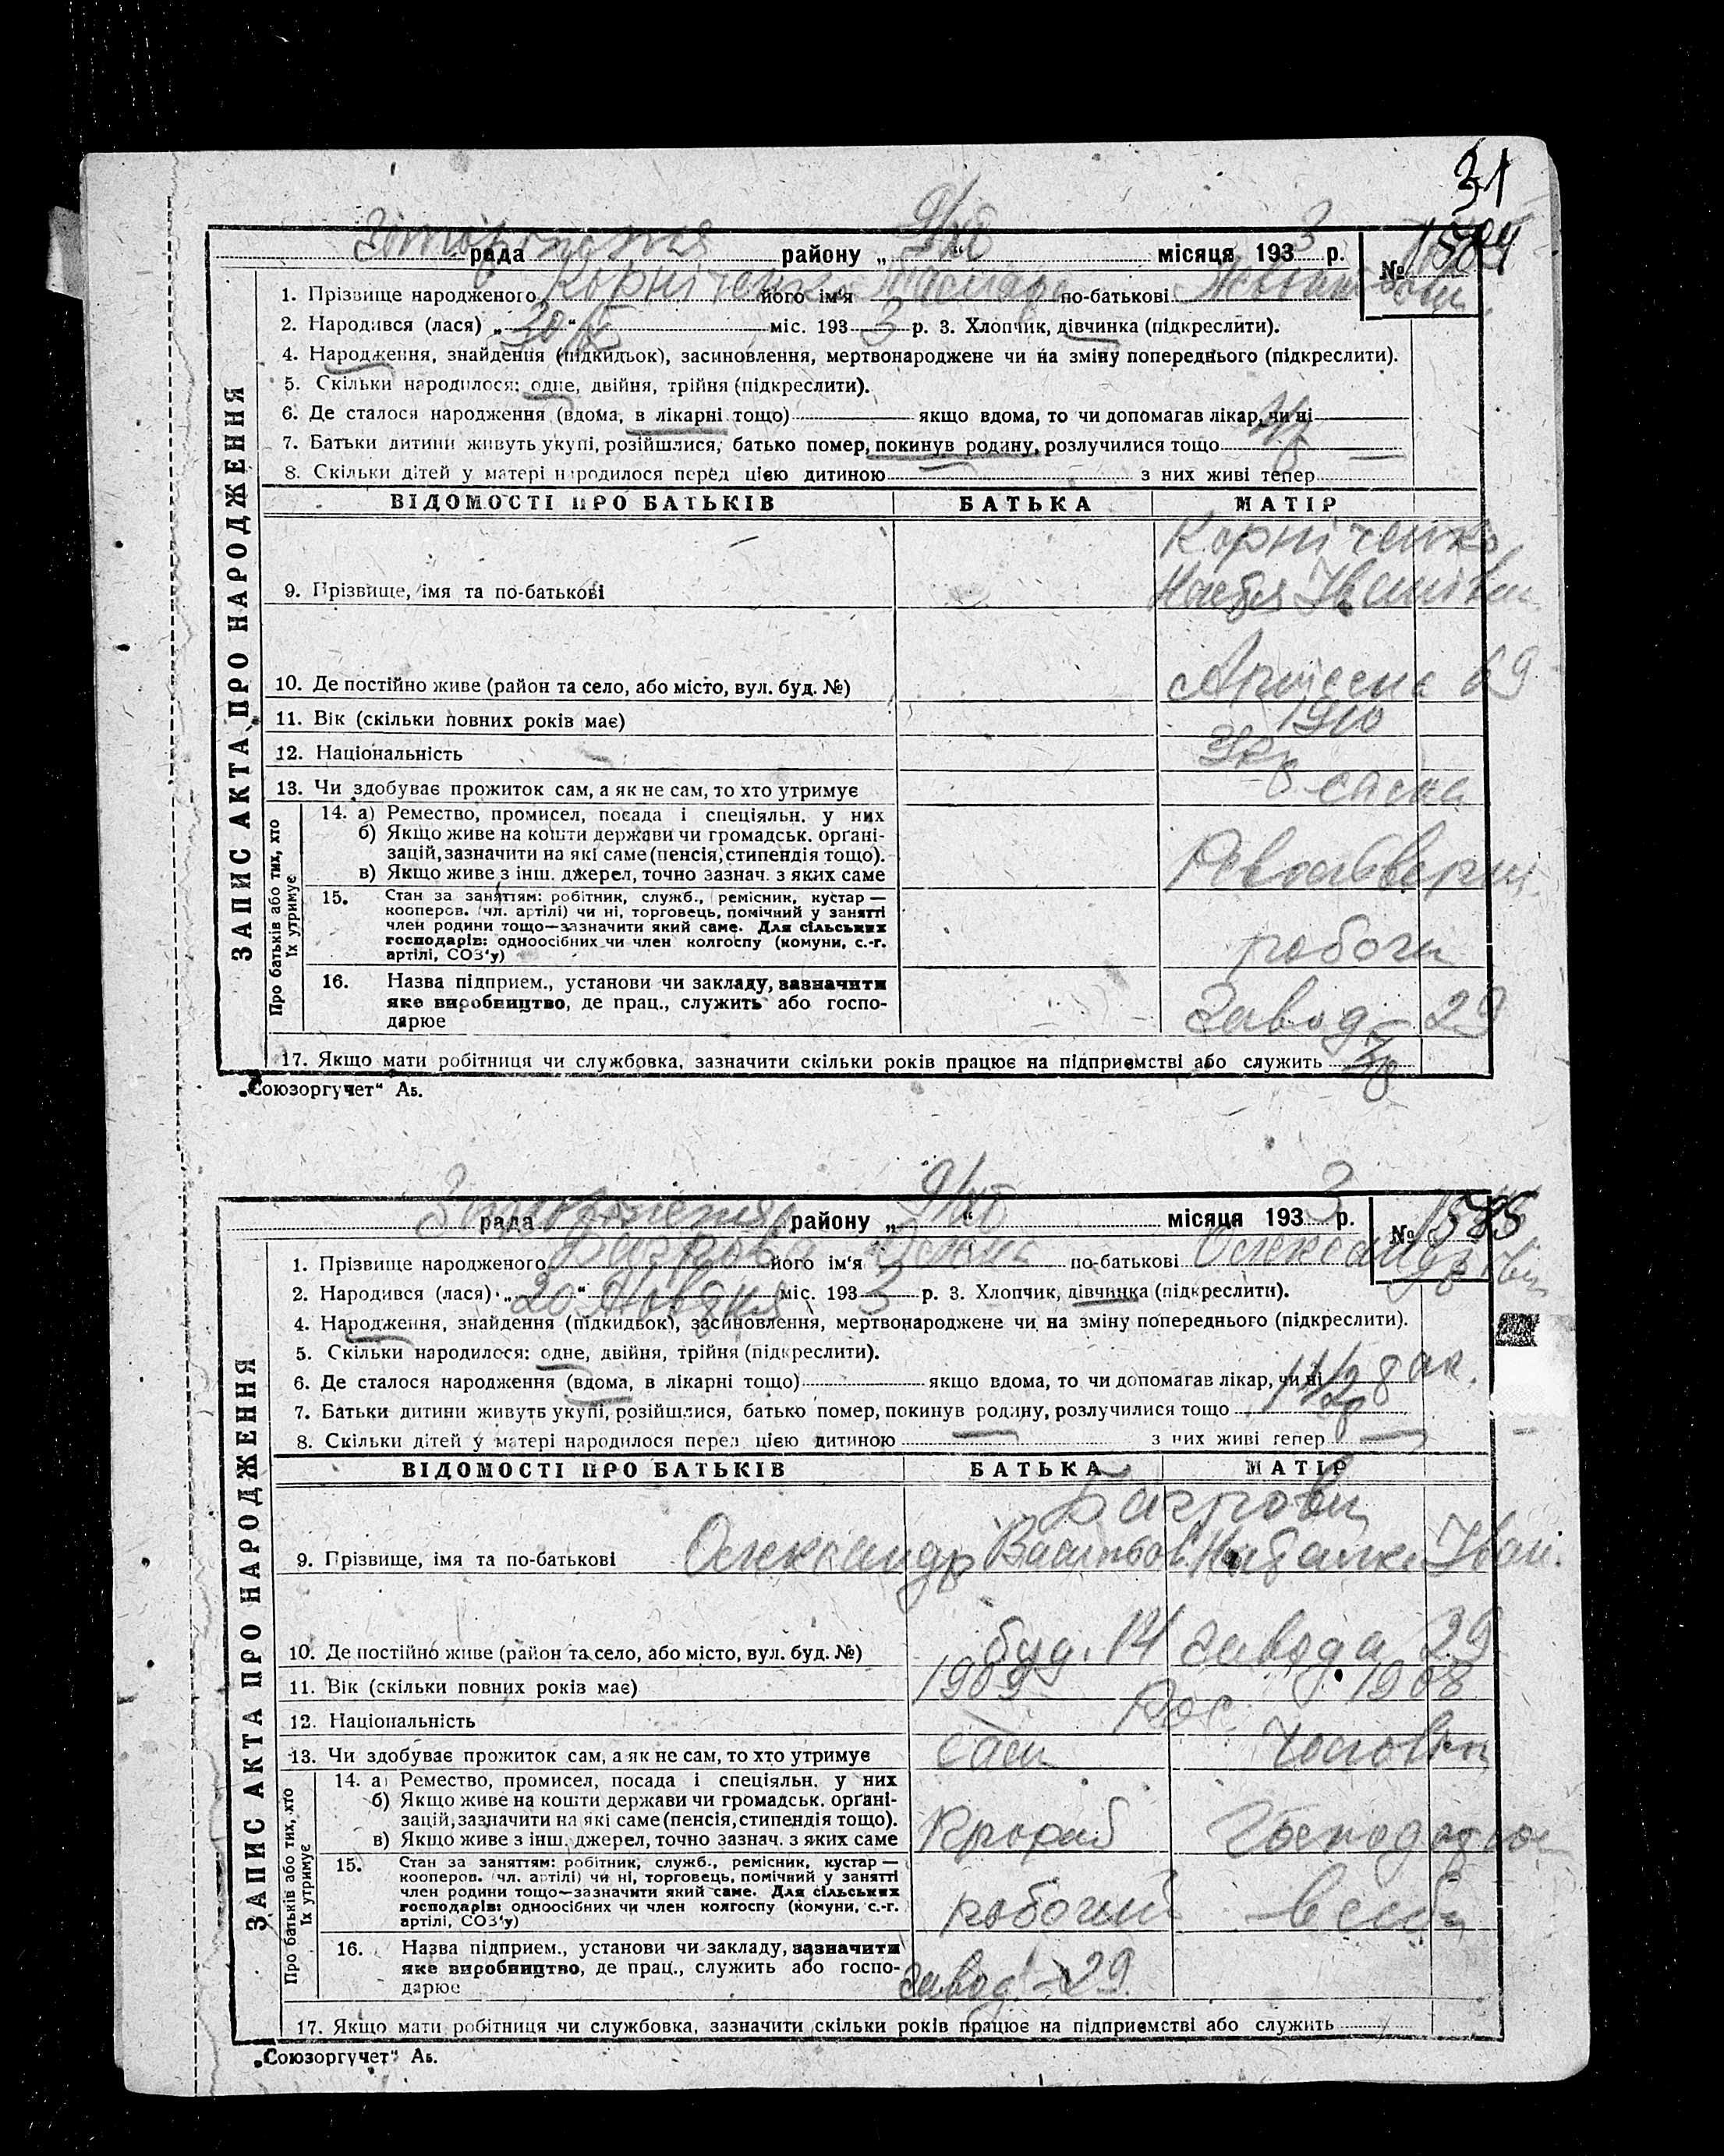 31
рада району „9/XI“ місяця 1933 р. №
1. Прізвище народженого Корніченко його ім'я по-батькові
2. Народився (лася) „30/X“ міс. 1933 р. 3. Хлопчик, дівчинка (підкреслити).
4. Народження, знайдення (підкидьок), засиновлення, мертвонароджене чи на зміну попереднього (підкреслити).
5. Скільки народилося: одне, двійня, трійня (підкреслити).
6. Де сталося народження (вдома, в лікарні тощо) якщо вдома, то чи допомагав лікар, чи ні
7. Батьки дитини живуть укупі, розійшлися, батько помер, покинув родину, розлучилися тощо
8. Скільки дітей у матері народилося перед цією дитиною з них живі тепер
ЗАПИС АКТА ПРО НАРОДЖЕННЯ
ВІДОМОСТІ ПРО БАТЬКІВ БАТЬКА МАТІР
Корніченко
9. Прізвище, імя та по-батькові
10. Де постійно живе (район та село, або місто, вул. буд. №) 69
11. Вік (скільки повних років має) 1910
12. Національність Укр
13. Чи здобуває прожиток сам, а як не сам, то хто утримує сама
Про батьків або тих, хто їх утримує
14. а) Ремество, промисел, посада і спеціяльн. у них
б) Якщо живе на кошти держави чи громадськ. органі-
зацій, зазначити на які саме (пенсія, стипендія тощо).
в) Якщо живе з інш. джерел, точно зазнач. з яких саме
15. Стан за заняттям: робітник, служб., ремісник, кустар —
кооперов. (чл. артілі) чи ні, торговець, помічний у занятті
член родини тощо—зазначити який саме. Для сільських
господарів: одноосібних чи член колгоспу (комуни, с.-г.
артілі, СОЗ'у)
16. Назва підприєм., установи чи закладу, зазначити
яке виробництво, де прац., служить або госпо-
дарює Завод – 29
17. Якщо мати робітниця чи службовка, зазначити скільки років працює на підприємстві або служить
„Союзоргучет“ Аб.
рада району „9/XI“ місяця 1933 р. № 1585
1. Прізвище народженого Багрова його ім'я по-батькові Олександрівни
2. Народився (лася) „20 Жовтня“ міс. 1933 р. 3. Хлопчик, дівчинка (підкреслити).
4. Народження, знайдення (підкидьок), засиновлення, мертвонароджене чи на зміну попереднього (підкреслити).
5. Скільки народилося: одне, двійня, трійня (підкреслити).
6. Де сталося народження (вдома, в лікарні тощо) якщо вдома, то чи допомагав лікар, чи ні
7. Батьки дитини живуть укупі, розійшлися, батько помер, покинув родину, розлучилися тощо
8. Скільки дітей у матері народилося перед цією дитиною з них живі тепер
ЗАПИС АКТА ПРО НАРОДЖЕННЯ
ВІДОМОСТІ ПРО БАТЬКІВ БАТЬКА МАТІР
Багрови
9. Прізвище, імя та по-батькові Олександр Васильов. Наталка Іван.
10. Де постійно живе (район та село, або місто, вул. буд. №) буд. 14 завода 29
11. Вік (скільки повних років має) 1909 1908
12. Національність Рос.
13. Чи здобуває прожиток сам, а як не сам, то хто утримує сам чоловік
Про батьків або тих, хто їх утримує
14. а) Ремество, промисел, посада і спеціяльн. у них
б) Якщо живе на кошти держави чи громадськ. органі-
зацій, зазначити на які саме (пенсія, стипендія тощо).
в) Якщо живе з інш. джерел, точно зазнач. з яких саме Прораб
15. Стан за заняттям: робітник, служб., ремісник, кустар —
кооперов. (чл. артілі) чи ні, торговець, помічний у занятті
член родини тощо—зазначити який саме. Для сільських
господарів: одноосібних чи член колгоспу (комуни, с.-г.
артілі, СОЗ'у) робочий
16. Назва підприєм., установи чи закладу, зазначити
яке виробництво, де прац., служить або госпо-
дарює завод – 29
17. Якщо мати робітниця чи службовка, зазначити скільки років працює на підприємстві або служить
„Союзоргучет“ Аб.